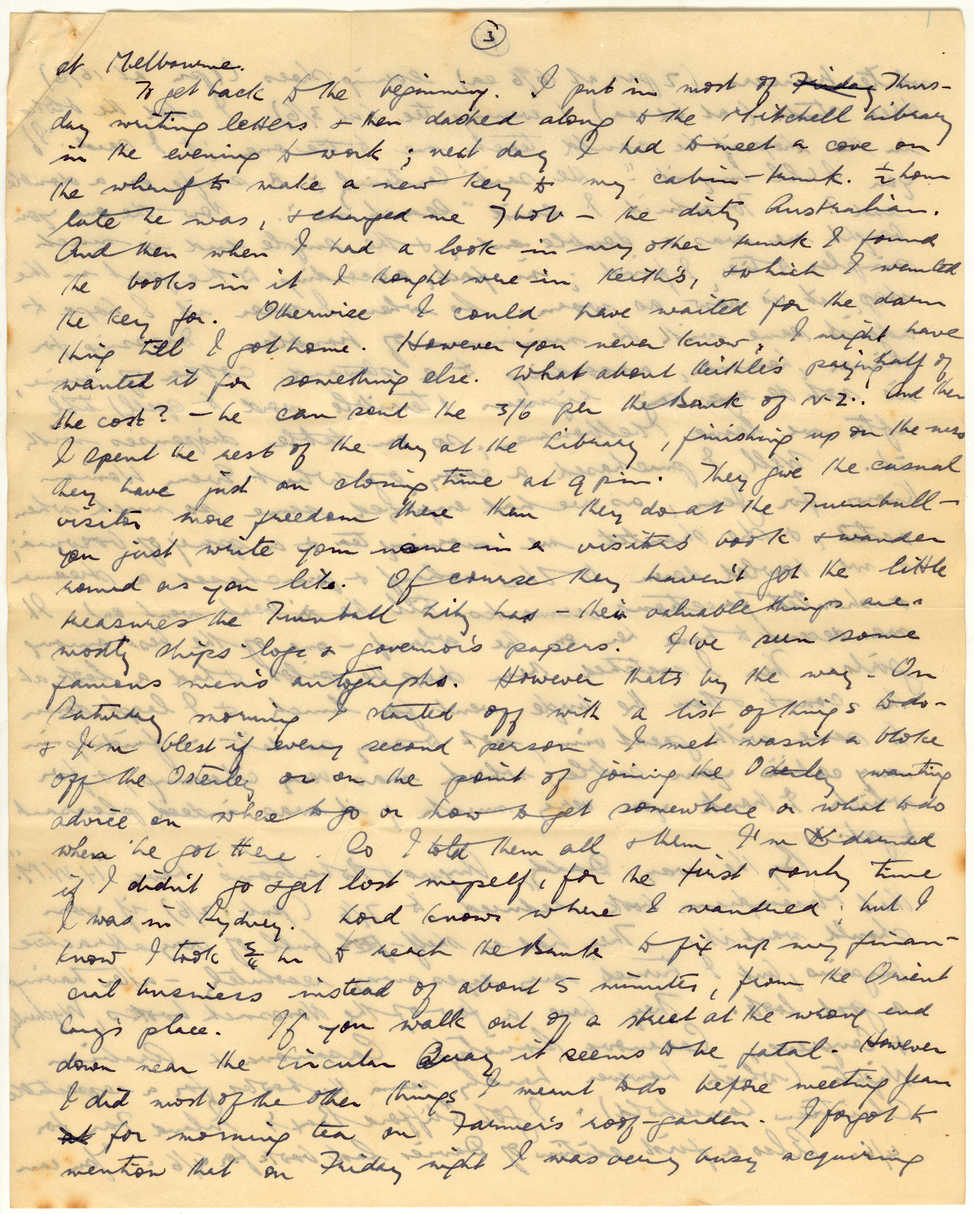 3
at Melbourne.
To get back to the beginning. I put in most of Friday Thurs-
day writing letters & then dashed along to the Mitchell Library
in the evening to work; next day I had to meet a cove on
the wharf to make a new key to my cabin-trunk. ½ hour
late he was, & charged me 7 bob – the dirty Australian.
And then when I had a look in my other trunk I found
the books in it I thought were in Keith's, & which I wanted
the key for. Otherwise I could have waited for the darn
thing till I got home. However you never know, I might have
wanted it for something else. What about Keithie's paying half of
the cost? – he can send the 3/6 per the Bank of N.Z.. And then
I spent the rest of the day at the Library, finishing up on the
they have just on closing time at 9 pm. They give the casual
visitor more freedom there than they do at the Turnbull –
you just write your name in a visitors book & wander
round as you like. Of course they haven't got the little
treasures the Turnbull Liby has – their valuable things are
mostly ships' logs & governor's papers. I've seen some
famous men's autographs. However thats by the way. On
Saturday morning I started off with a list of things to do –
& I'm blest if every second person I met wasn't a bloke
off the Osterley or on the point of joining the Osterley wanting
advice on where to go or how to get somewhere or what to do
when he got there. So I told them all & then I'm darned
if I didn't go & get lost myself, for the first & only time
I was in Sydney. Lord knows where I wandered; but I
know I took ¾ hr to reach the Bank to fix up my finan-
cial business instead of about 5 minutes, from the Orient
Coy's place. If you walk out of a street at the wrong end
down near the Circular Quay it seems to be fatal. However
I did most of the other things I meant to do before meeting Jean
at for morning tea on Farmer's roof-garden. I forgot to
mention that on Friday night I was very busy acquiring